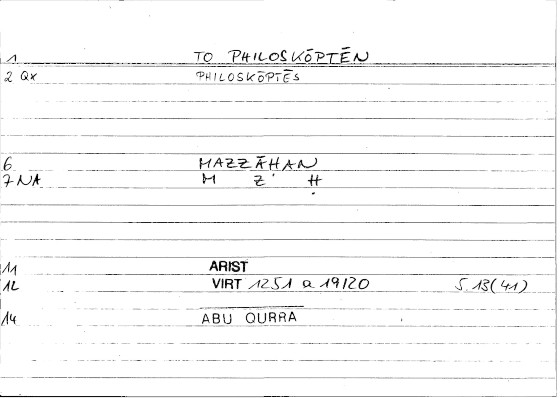 1 TO PHILOSKŌPTĒN
2 QX PHILOSKŌPTĒS
6 MAZZĀḤAN
7 NA M Z Ḥ
11 ARIST
12 VIRT 1251 a 19/20 S. 13(41)
14 ABU QURRA